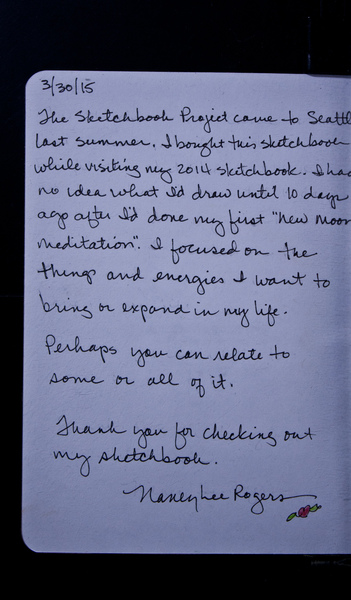 3/30/15
The Sketchbook Project came to Seattl
last summer. I bought this sketchbook
while visiting my 2014 sketchbook. I had
no idea what I'd draw until 10 days
ago after I'd done my first "new moon
meditation". I focused on the
things and energies I want to
bring or expand in my life.
Perhaps you can relate to
some or all of it.
Thank you for checking out
my sketchbook.
NancyLee Rogers